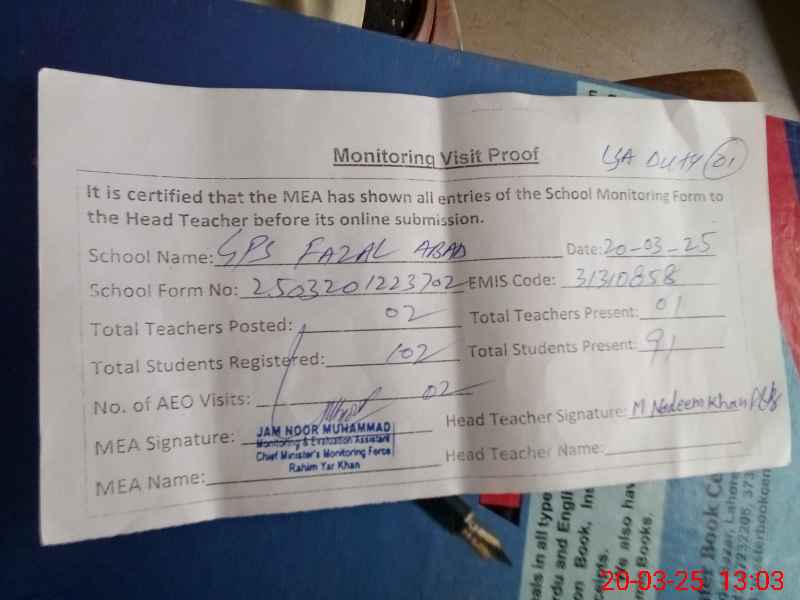 Monitoring Visit Proof
DUTY 01
It is certified that the MEA has shown all entries of the School Monitoring Form to
the Head Teacher before its online submission.
School Name: GPS FAZAL ABAD Date: 20-03-25
School Form No: 2503201223702 EMIS Code: 31310858
Total Teachers Posted: 02 Total Teachers Present: 01
Total Students Registered: 102 Total Students Present: 91
No. of AEO Visits: 02
MEA Signature: Head Teacher Signature: M Nadeem Khan
JAM NOOR MUHAMMAD
Monitoring & Evaluation Assistant
Chief Minister's Monitoring Force
Rahim Yar Khan
MEA Name: Head Teacher Name:
Book Ce
Lahore
7232205, 373
in all type
and Engli
Book, Ins
also hav
Books.
20-03-25 13:03